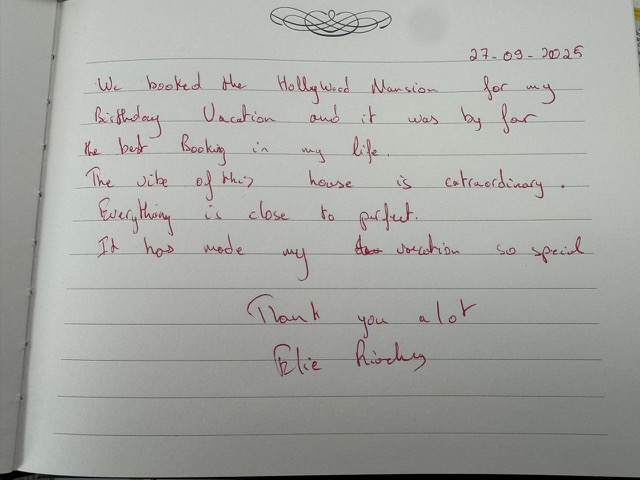 27-09-2025
We booked the Hollywood Mansion for my
Birthday Vacation and it was by far
the best Booking in my life.
The vibe of this house is extraordinary.
Everything is close to perfect.
It has made my vacation so special
Thank you a lot
Elie